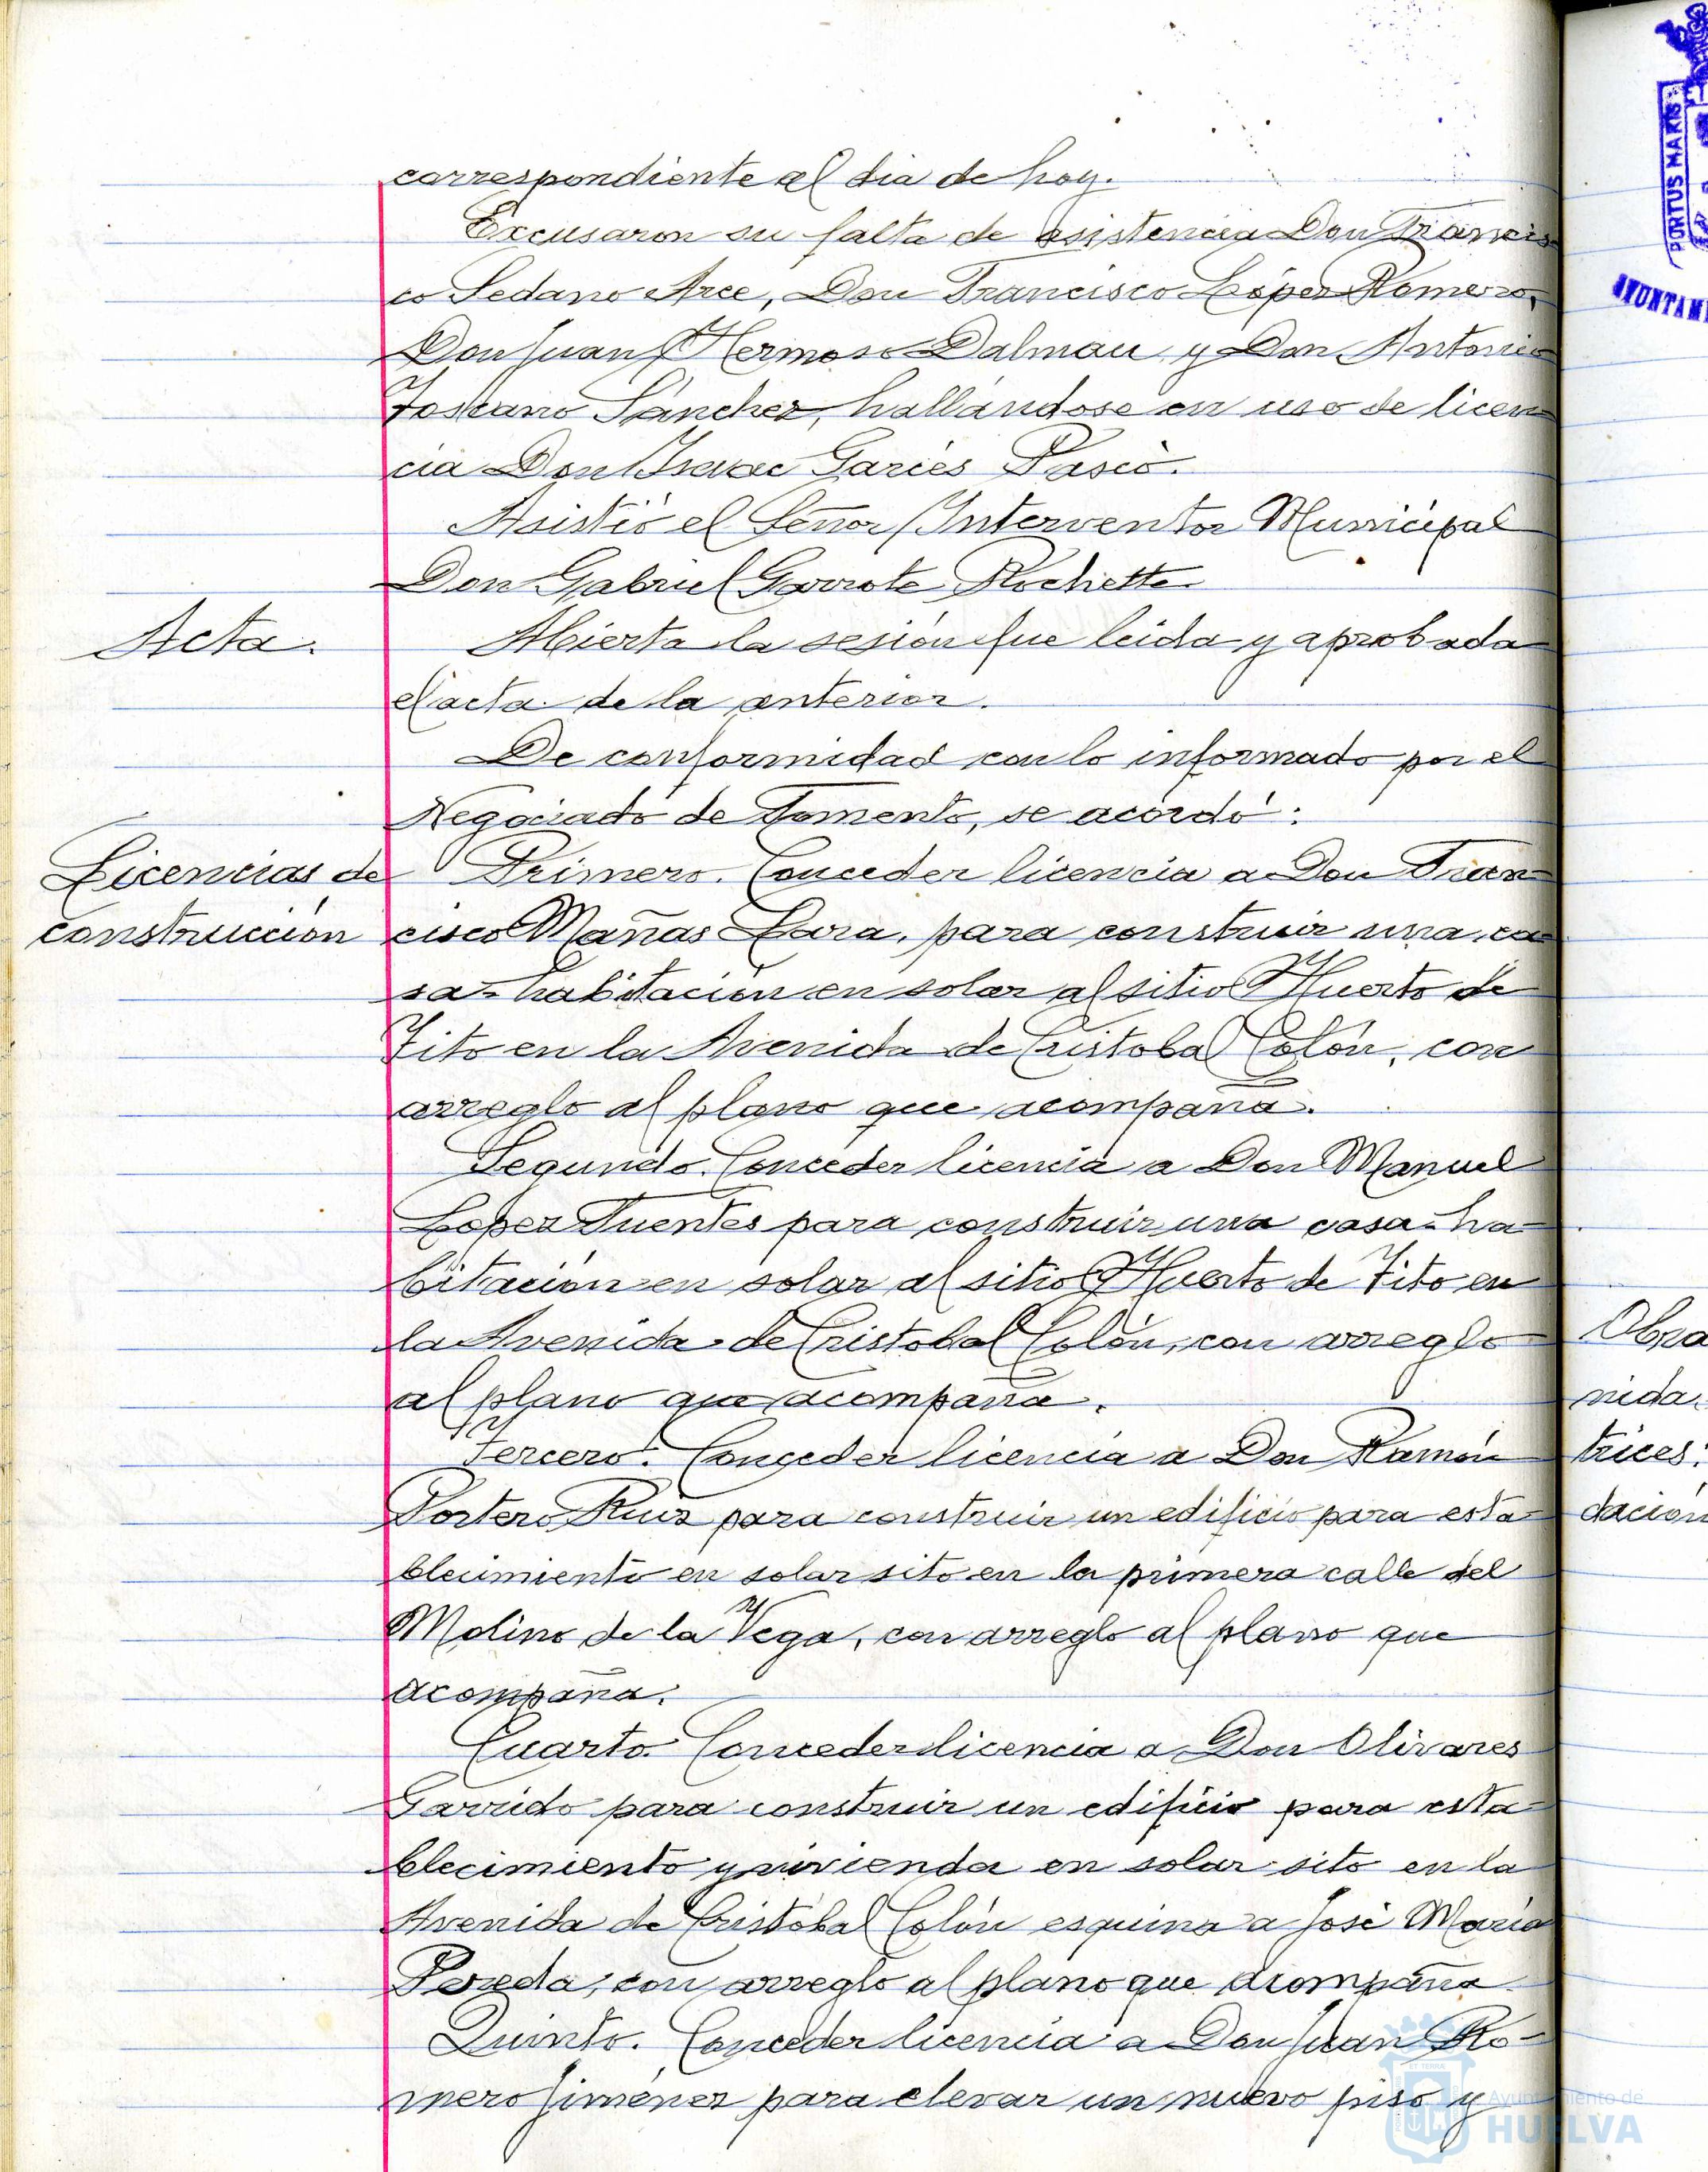 correspondiente al dia de hoy.
Excusaron su falta de asistencia Don Francis
co Sedano Arce, Don Francisco López Romero,
Don Juan Hermoso Dalmau y Don Antonio
Toscano Sánchez, hallándose en uso de licen
cia Don Isaac Garcés
Asistió el Señor Interventor Municipal
Don Gabriel Garrote Rochette.
Acta.
Abierta la sesión fue leida y aprobada
el acta de la anterior.
De conformidad con lo informado por el
Negociado de Fomento, se acordó:
Licencias de
construcción
Primero. Conceder licencia a Don Fran
cisco Mañas Lara, para construir una ca
sa-habitación en solar al sitio Huerto de
Tito en la Avenida de Cristobal Colón, con
arreglo al plano que acompaña.
Segundo. Conceder licencia a Don Manuel
López Fuentes para construir una casa-ha
bitación en solar al sitio Huerto de Tito en
la Avenida de Cristobal Colón, con arreglo
al plano que acompaña.
Tercero. Conceder licencia a Don Ramón
Portero Ruiz para construir un edificio para esta
blecimiento en solar sito en la primera calle del
Molino de la Vega, con arreglo al plano que
acompaña.
Cuarto. Conceder licencia a Don Olivares
Garrido para construir un edificio para esta
blecimiento y vivienda en solar sito en la
Avenida de Cristóbal Colón esquina a José María
Pereda, con arreglo al plano que acompaña.
Quinto. Conceder licencia a Don Juan Ro-
mero Jiménez para elevar un nuevo piso y
PORTUS MARIS
AYUNTAM
Obra
nida
trices:
dación
Ayuntamiento de
HUELVA